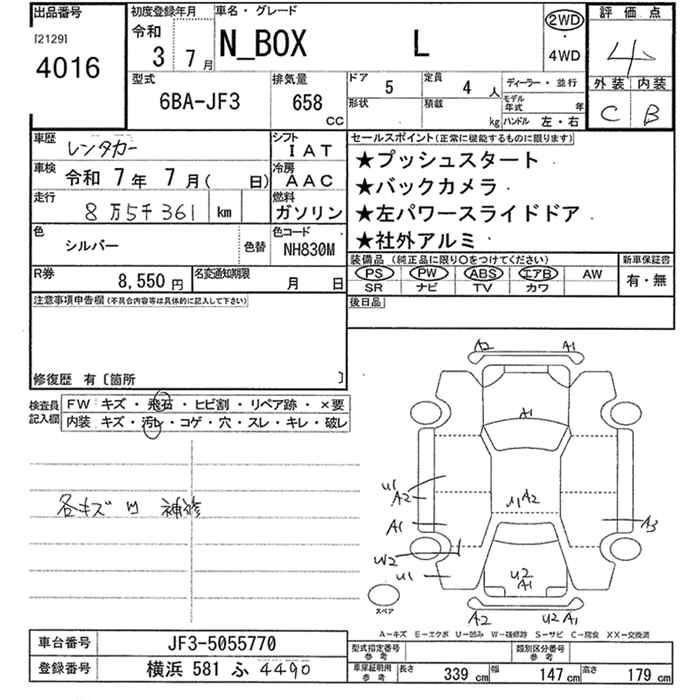 出品番号
[2129]
4016
初度登録年月
令和
3 7月
車名・グレード
N_BOX L
2WD
・
4WD
評価点
4
外装 内装
C B
型式
6BA-JF3
排気量
658
CC
ドア
5
定員
4 人
形状
積載
kg
ディーラー・並行
モデル
年式 年
ハンドル 左・右
車歴
レンタカー
シフト
IAT
車検 令和 7年 7月( 日)
冷房
AAC
走行
8万5千361 km
燃料
ガソリン
色
シルバー
色替
色コード
NH830M
R券
8,550 円
名変通知期限
月 日
セールスポイント(正常に機能するものに限ります)
★プッシュスタート
★バックカメラ
★左パワースライドドア
★社外アルミ
装備品 (純正品に限り○をつけてください)
PS PW ABS エアB AW
SR ナビ TV カワ
新車保証書
有・無
後日品
注意事項申告欄(不具合内容等は具体的に記入して下さい)
修復歴 有〔箇所 〕
検査員
記入欄
FW キズ・飛石・ヒビ割・リペア跡・×要
内装 キズ・汚レ・コゲ・穴・スレ・キレ・破レ
各キズ凹 補修
A2 A1
A1
U1
A2
A1
U1 A2
A3
W2
U1
U2
A1
スペア
A2 U2 A1
A-キズ E-エクボ U-凹み W-補修跡 S-サビ C-腐食 XX-交換済
車台番号
JF3-5055770
登録番号
横浜 581 ふ 4490
型式指定番号
参考
類別区分番号
参考
車庫証明用
参考
長さ 339 cm 幅 147 cm 高さ 179 cm